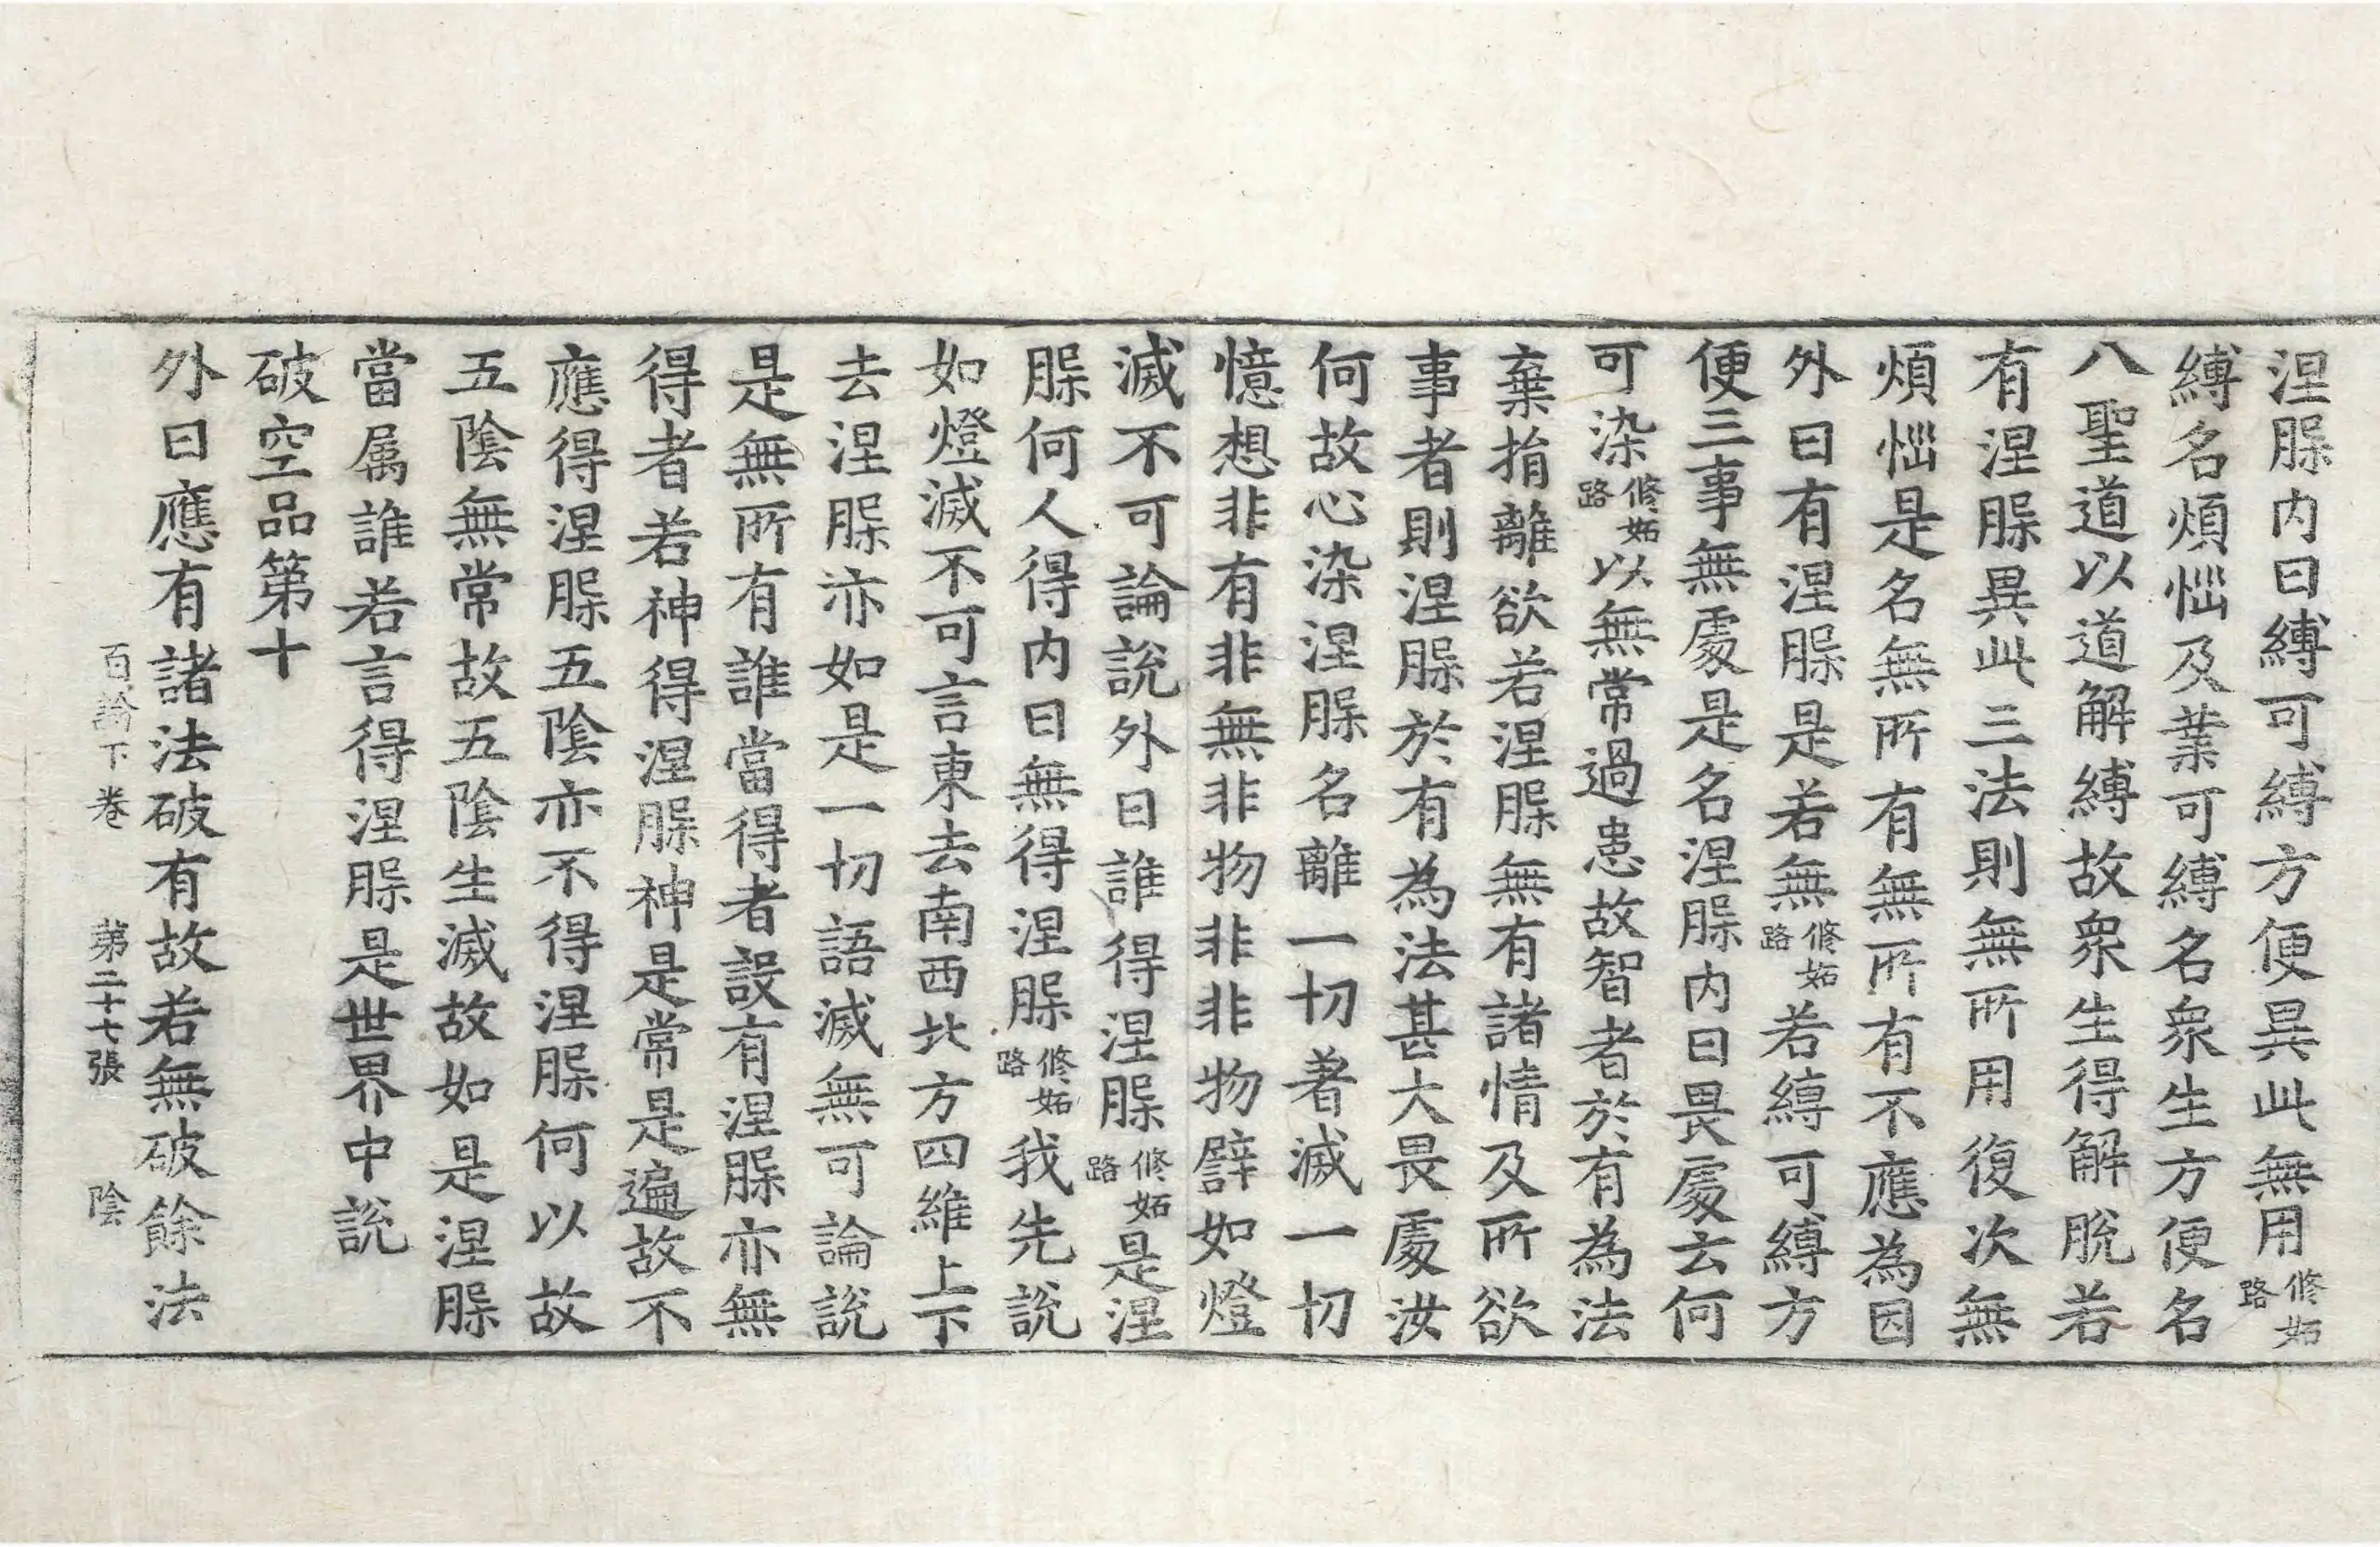 涅槃内曰縛可縛方便異此無用修妬路
縛名煩惱及業可縛名衆生方便名
八聖道以道解縛故衆生得解脫若
有涅槃異此三法則無所用復次無
煩惱是名無所有無所有不應為因
外曰有涅槃是若無修妬路若縛可縛方
便三事無處是名涅槃内曰畏處云何
可染修妬路以無常過患故智者於有為法
棄捐離欲若涅槃無有諸情及所欲
事者則涅槃於有為法甚大畏處汝
何故心染涅槃名離一切著滅一切
憶想非有非無非物非非物譬如燈
滅不可論說外曰誰得涅槃修妬路是涅
槃何人得内曰無得涅槃修妬路我先說
如燈滅不可言東去南西北方四維上下
去涅槃亦如是一切語滅無可論說
是無所有誰當得者設有涅槃亦無
得者若神得涅槃神是常是遍故不
應得涅槃五陰亦不得涅槃何以故
五陰無常故五陰生滅故如是涅槃
當属誰若言得涅槃是世界中說
破空品第十
外曰應有諸法破有故若無破餘法
百論下卷 第二十七張 陰